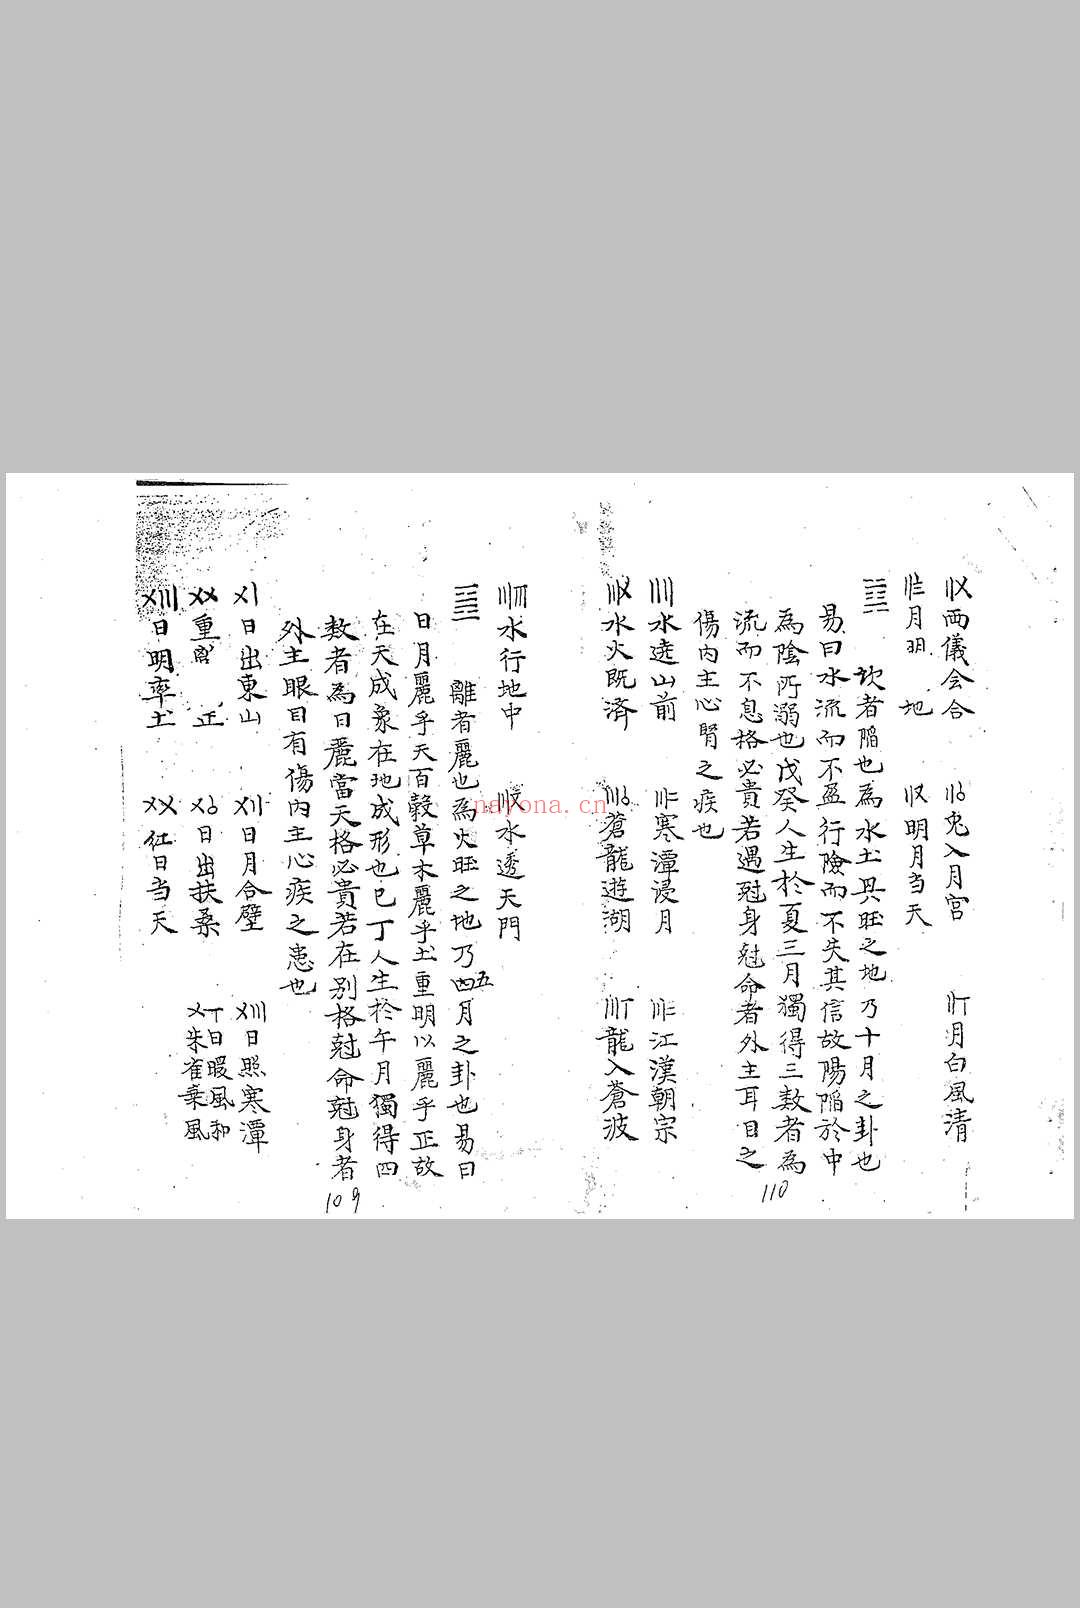 〢〤両儀会合
〢〥兎入月宮
〢〦月白風清
月明 地
明月当天
坎者陷也為水土具旺之地乃十月之卦也
易曰水流而不盈行險而不失其信故陽陷於中
為陰所溺也戊癸人生於夏三月獨得三数者為
流而不息格必貴若遇尅身尅命者外主耳目之
傷内主心腎之疾也
水遶山前
寒潭浸月
江漢朝宗
〣〤水火既済
〣〥蒼龍遊湖
〣〦龍入蒼波
110
水行地中
水透天門
離者麗也為火旺之地乃四五月之卦也易曰
日月麗乎天百穀草木麗乎土重明以麗乎正故
在天成象在地成形也已丁人生於午月獨得四
数者為日麗當天格必貴若在别格尅命尅身者
外主眼目有傷内主心疾之患也
〤〡日出東山
〤〢日月合璧
〤〣日照寒潭
〤〤重 正
〤〥日出扶桑
〤〦日暖風和
朱雀乗風
日明率土
紅日当天
109
nayona.cn